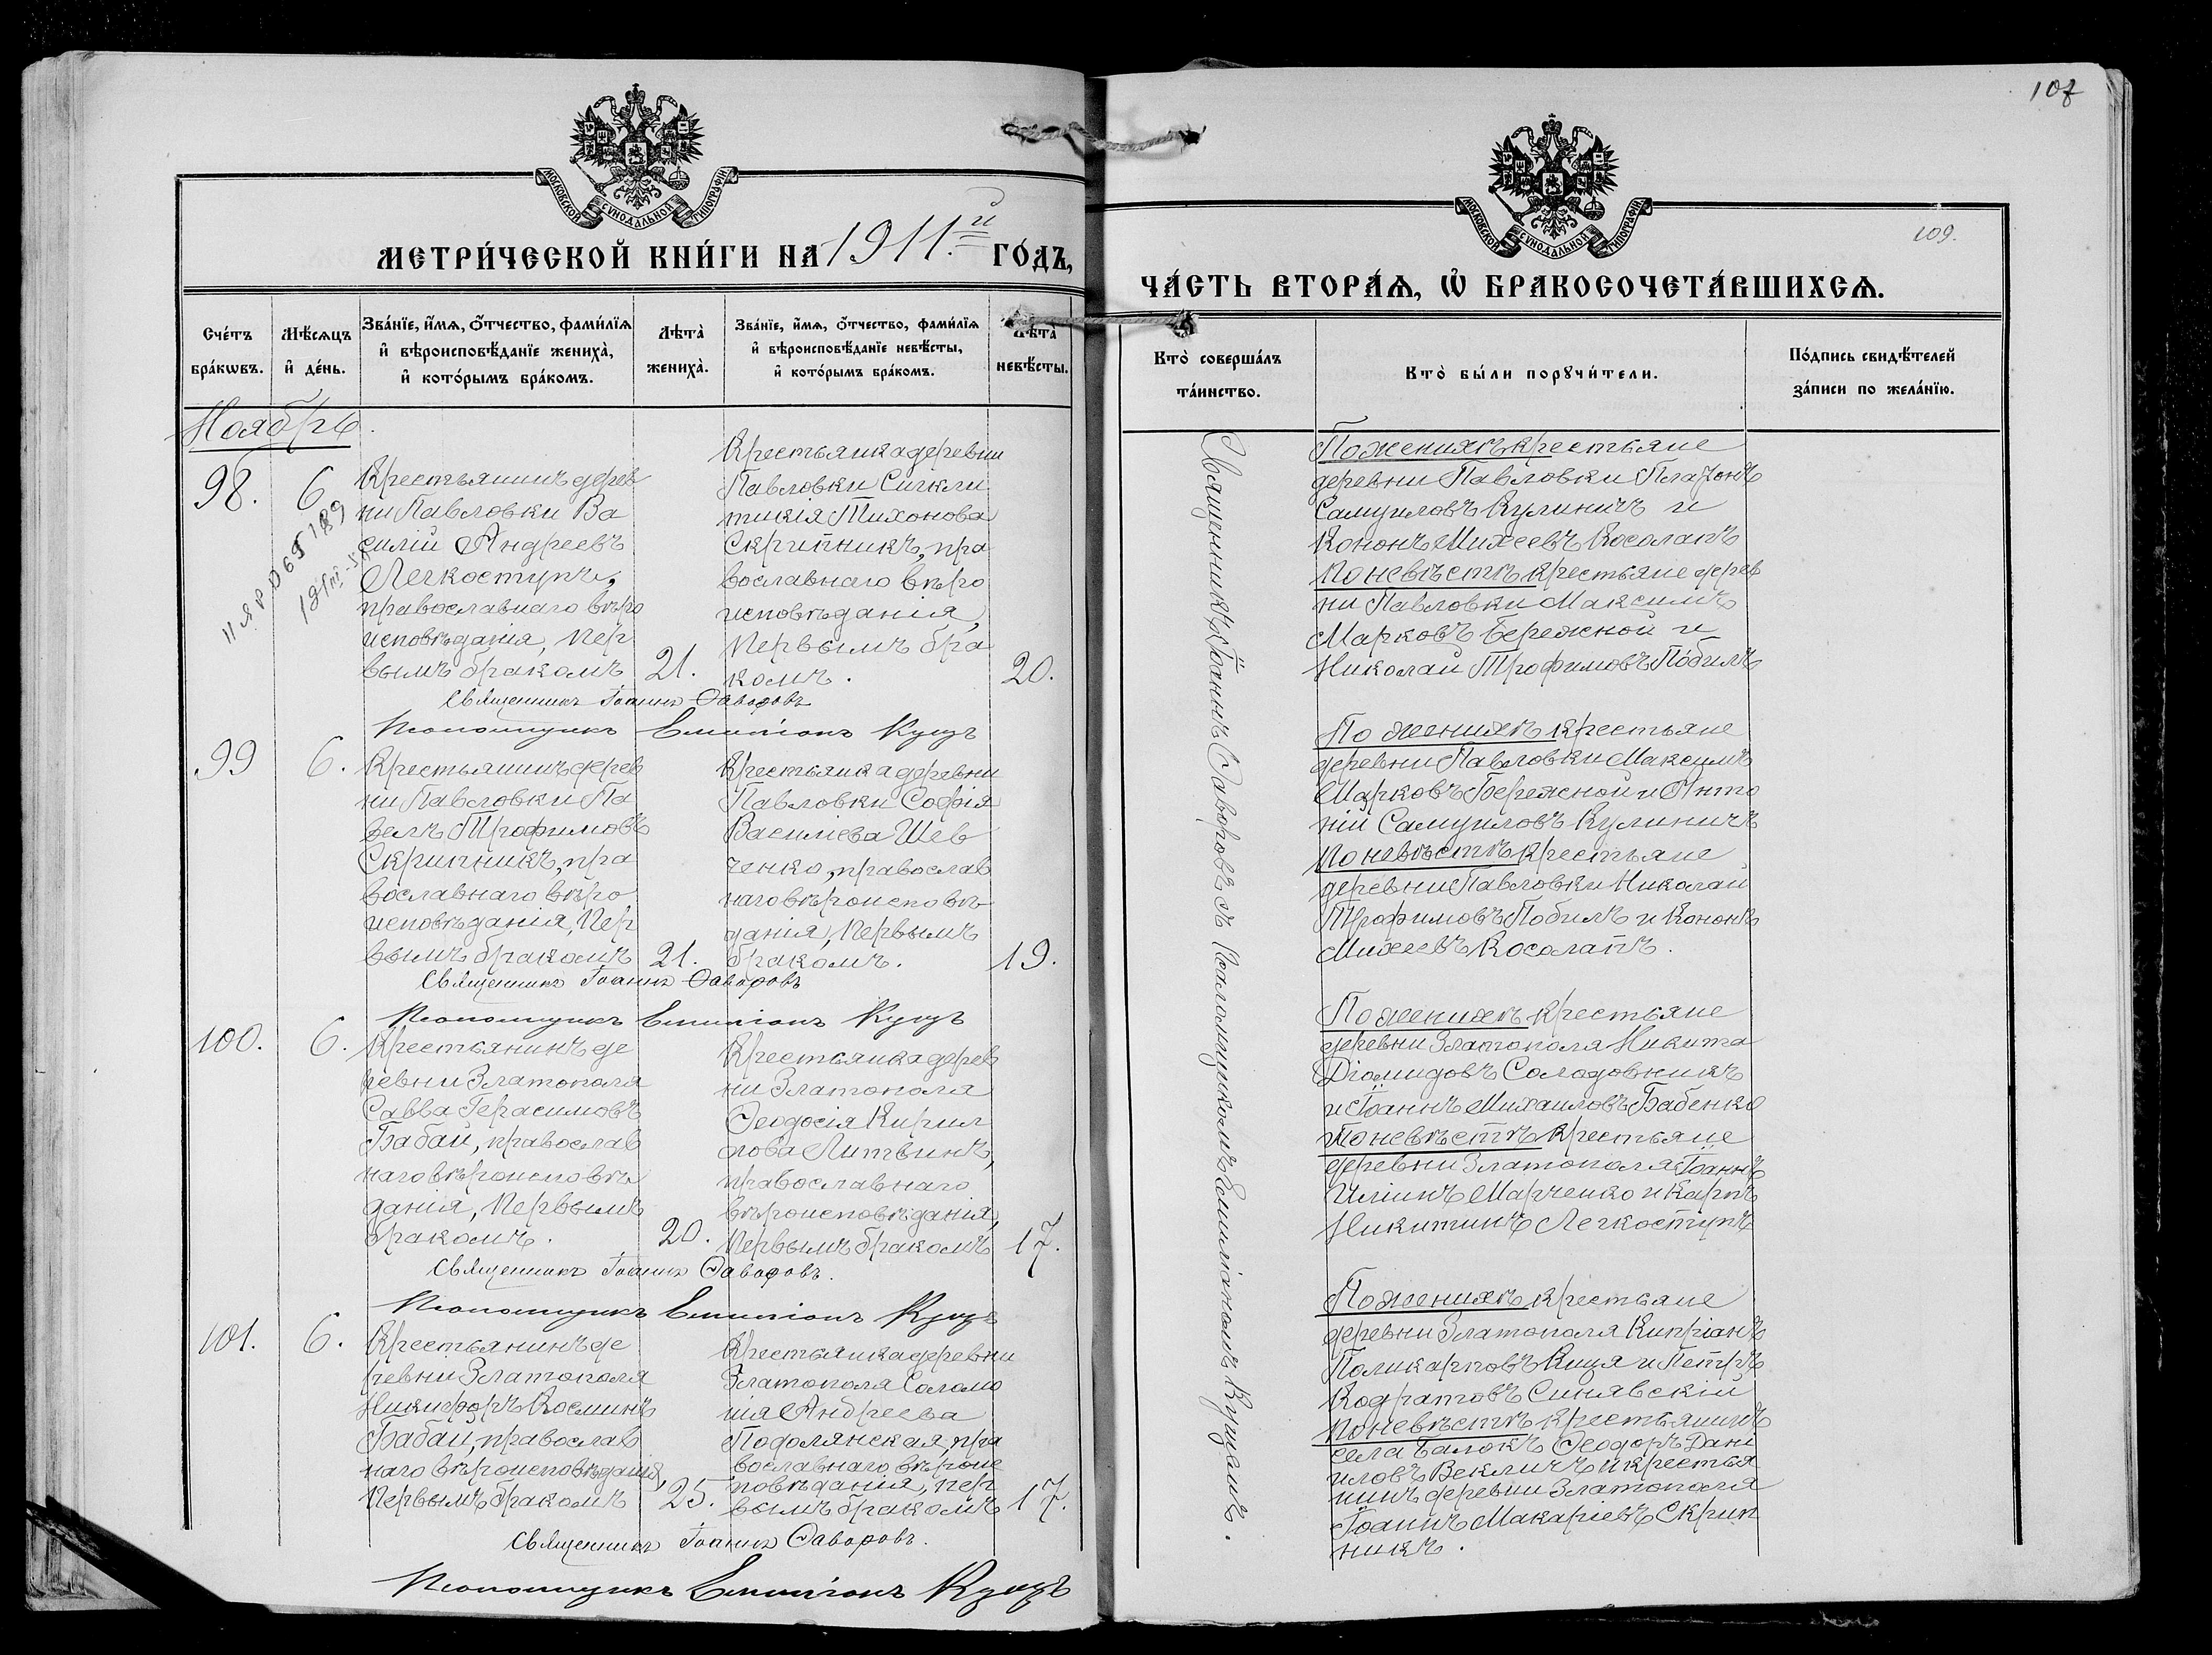 107
МОСКОВСКОЙ СѴНОДАЛЬНОЙ ТИПОГРАФІИ
МЕТРИ́ЧЕСКОЙ КНИ́ГИ НА 1911.й ГО́ДЪ,
Сче́тъ бра́кѡвъ.
Мѣ́сяцъ и҆ де́нь.
Зва́нїе, и҆́мѧ, ѻ҆́тчество, фами́лїѧ
и҆ вѣроисповѣ́данїе жениха̀,
и҆ кото́рымъ бра́комъ.
Лѣта̀ жениха̀.
Зва́нїе, и҆́мѧ, ѻ҆́тчество, фами́лїѧ
и҆ вѣроисповѣ́данїе невѣ́сты,
и҆ кото́рымъ бра́комъ.
Лѣта̀ невѣ́сты.
Ноябрь.
98.
6
Крестьянинъ дерев
ни Павловки Ва
силій Андреевъ
Легкоступъ,
православнаго вѣро
исповѣданія, пер
вымъ бракомъ
21.
Крестьянка деревни
Павловки Сигкли
тикія Тихонова
Скрипникъ, пра
вославнаго вѣро
исповѣданія,
первымъ бра
комъ.
20.
Священникъ Іоаннъ Ѳаворовъ
Псаломщикъ Емиліанъ Куцъ
99
6.
Крестьянинъ дерев
ни Павловки Па
велъ Трофимовъ
Скрипникъ, пра
вославнаго вѣро
исповѣданія, пер
вымъ бракомъ
21.
Крестьянка деревни
Павловки Софія
Василіева Шев
ченко, православ
наго вѣроисповѣ-
данія, первымъ
бракомъ.
19.
Священникъ Іоаннъ Ѳаворовъ
Псаломщикъ Емиліанъ Куцъ
100.
6.
Крестьянинъ де
ревни Златополя
Савва Герасимовъ
Бабай, православ
наго вѣроисповѣ
данія, первымъ
бракомъ.
20.
Крестьянка дерев
ни Златополя
Ѳеодосія Кирил
лова Литвинъ,
православнаго
вѣроисповѣданія,
первымъ бракомъ
17.
Священникъ Іоаннъ Ѳаворовъ.
Псаломщикъ Емиліанъ Куцъ
101.
6.
Крестьянинъ де
ревни Златополя
Никифоръ Косминъ
Бабай, православ
наго вѣроисповѣданія,
первымъ бракомъ
25.
Крестьянка деревни
Златополя Саломо
нія Андреева
Подолянская, пра
вославнаго вѣроис
повѣданія, пер
вымъ бракомъ
17.
Священникъ Іоаннъ Ѳаворовъ.
Псаломщикъ Емиліанъ Куцъ
МОСКОВСКОЙ СѴНОДАЛЬНОЙ ТИПОГРАФІИ
109.
ЧА́СТЬ ВТОРА́Ѧ, Ѡ҆ БРАКОСОЧЕТА́ВШИХСѦ.
Кто̀ соверша́лъ
та́инство.
Кто̀ бы́ли порꙋчи́тели.
По́дпись свидѣ́телей
за́писи по жела́нїю.
Священникъ Іоаннъ Ѳаворовъ съ псаломщикомъ Емиліаномъ Куцемъ.
По женихѣ крестьяне
деревни Павловки Платонъ
Самуиловъ Кулиничъ и
Кононъ Михеевъ Косолапъ
По невѣстѣ крестьяне дерев
ни Павловки Максимъ
Марковъ Бережной и
Николай Трофимовъ Побилъ
По женихѣ крестьяне
деревни Павловки Максимъ
Марковъ Бережной и Анто
ній Самуиловъ Кулиничъ
По невѣстѣ крестьяне
деревни Павловки Николай
Трофимовъ Побилъ и Кононъ
Михеевъ Косолапъ.
По женихѣ крестьяне
деревни Златополя Никита
Діомидовъ Солодовникъ
и Іоаннъ Михаиловъ Бабенко
По невѣстѣ крестьяне
деревни Златополя Іоаннъ
Иліинъ Марченко и Карпъ
Никитинъ Легкоступъ
По женихѣ крестьяне
деревни Златополя Кипріанъ
Поликарповъ Куця и Петръ
Кодратовъ Синявскій
По невѣстѣ крестьянинъ
села Балокъ Ѳеодоръ Дані
иловъ Векличъ и крестья
нинъ деревни Златополя
Іоаннъ Макаріевъ Скрип
никъ.